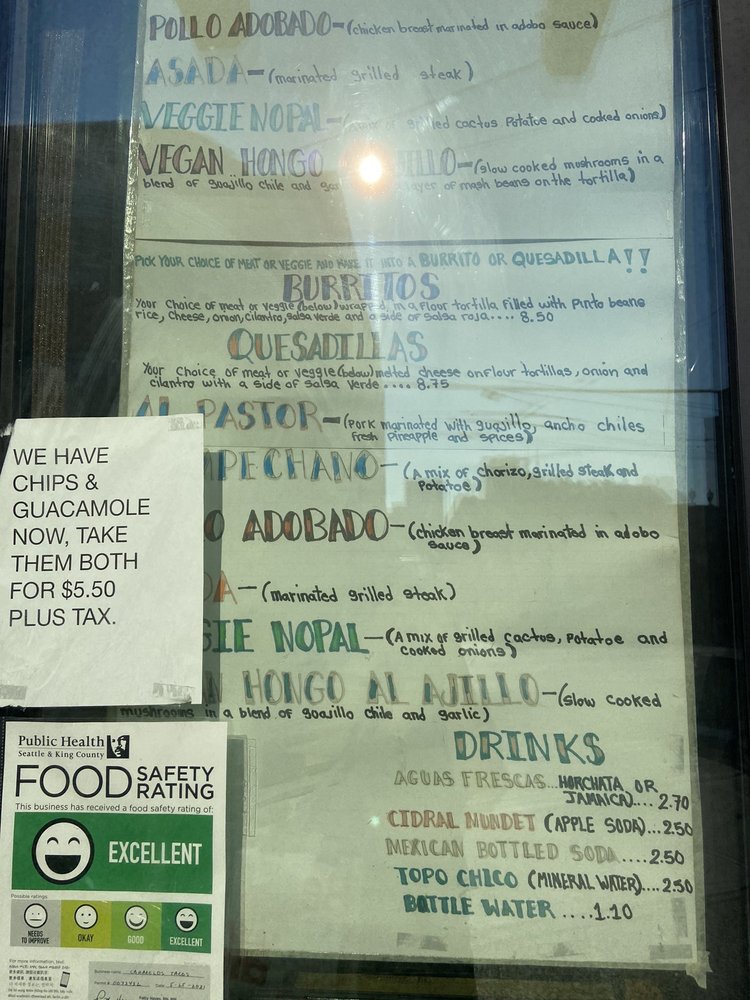 POLLO ADOBADO-(chicken breast marinated in adobo sauce)
ASADA-(marinated grilled steak)
VEGGIE NOPAL-( mix of grilled cactus. Potatoe and cooked onions)
VEGAN HONGO AJILLO-(slow cooked mushrooms in a
blend of guajillo chile and layer of mash beans on the tortilla)
PICK YOUR CHOICE OF MEAT OR VEGGIE AND MAKE IT INTO A BURRITO OR QUESADILLA!!
BURRITOS
Your Choice of meat or veggie (below) wrapped in a flour tortilla filled with pinto beans
rice, cheese, onion, cilantro, salsa verde and a side of salsa roja.... 8.50
QUESADILLAS
Your choice of meat or veggie (below) melted cheese on flour tortillas, onion and
cilantro with a side of salsa verde.... 8.75
AL PASTOR-(Pork marinated with guajillo, ancho chiles
fresh pineapple and spices)
MPECHANO-(A mix of chorizo, grilled steak and
Potatoe)
O ADOBADO-(chicken breast marinated in adobo
sauce)
DA-(marinated grilled steak)
GIE NOPAL-(A mix of grilled cactus, potatoe and
cooked onions)
N HONGO AL AJILLO-(slow cooked
mushrooms in a blend of guajillo chile and garlic)
DRINKS
AGUAS FRESCAS...HORCHATA OR
JAMAICA).... 2.70
CIDRAL MUNDET (APPLE SODA)...2.50
MEXICAN BOTTLED SODA....2.50
TOPO CHICO (MINERAL WATER)....2.50
BOTTLE WATER ....1.10
WE HAVE
CHIPS &
GUACAMOLE
NOW, TAKE
THEM BOTH
FOR $5.50
PLUS TAX.
Public Health
Seattle & King County
FOOD SAFETY
RATING
This business has received a food safety rating of:
EXCELLENT
Possible ratings:
NEEDS
TO IMPROVE
OKAY
GOOD
EXCELLENT
For more information, text
Business name CARMELOS TACOS
Permit # Date 5-25-2021